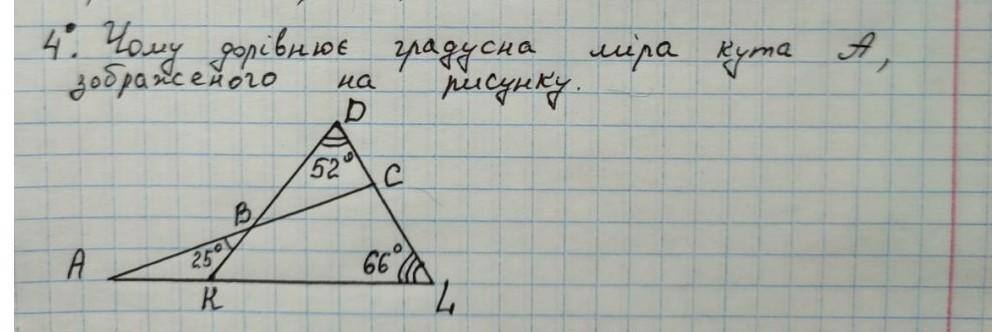 4°. Чому дорівнює градусна міра кута A,
зображеного на рисунку.
D
52°
C
B
25°
66°
A
K
L